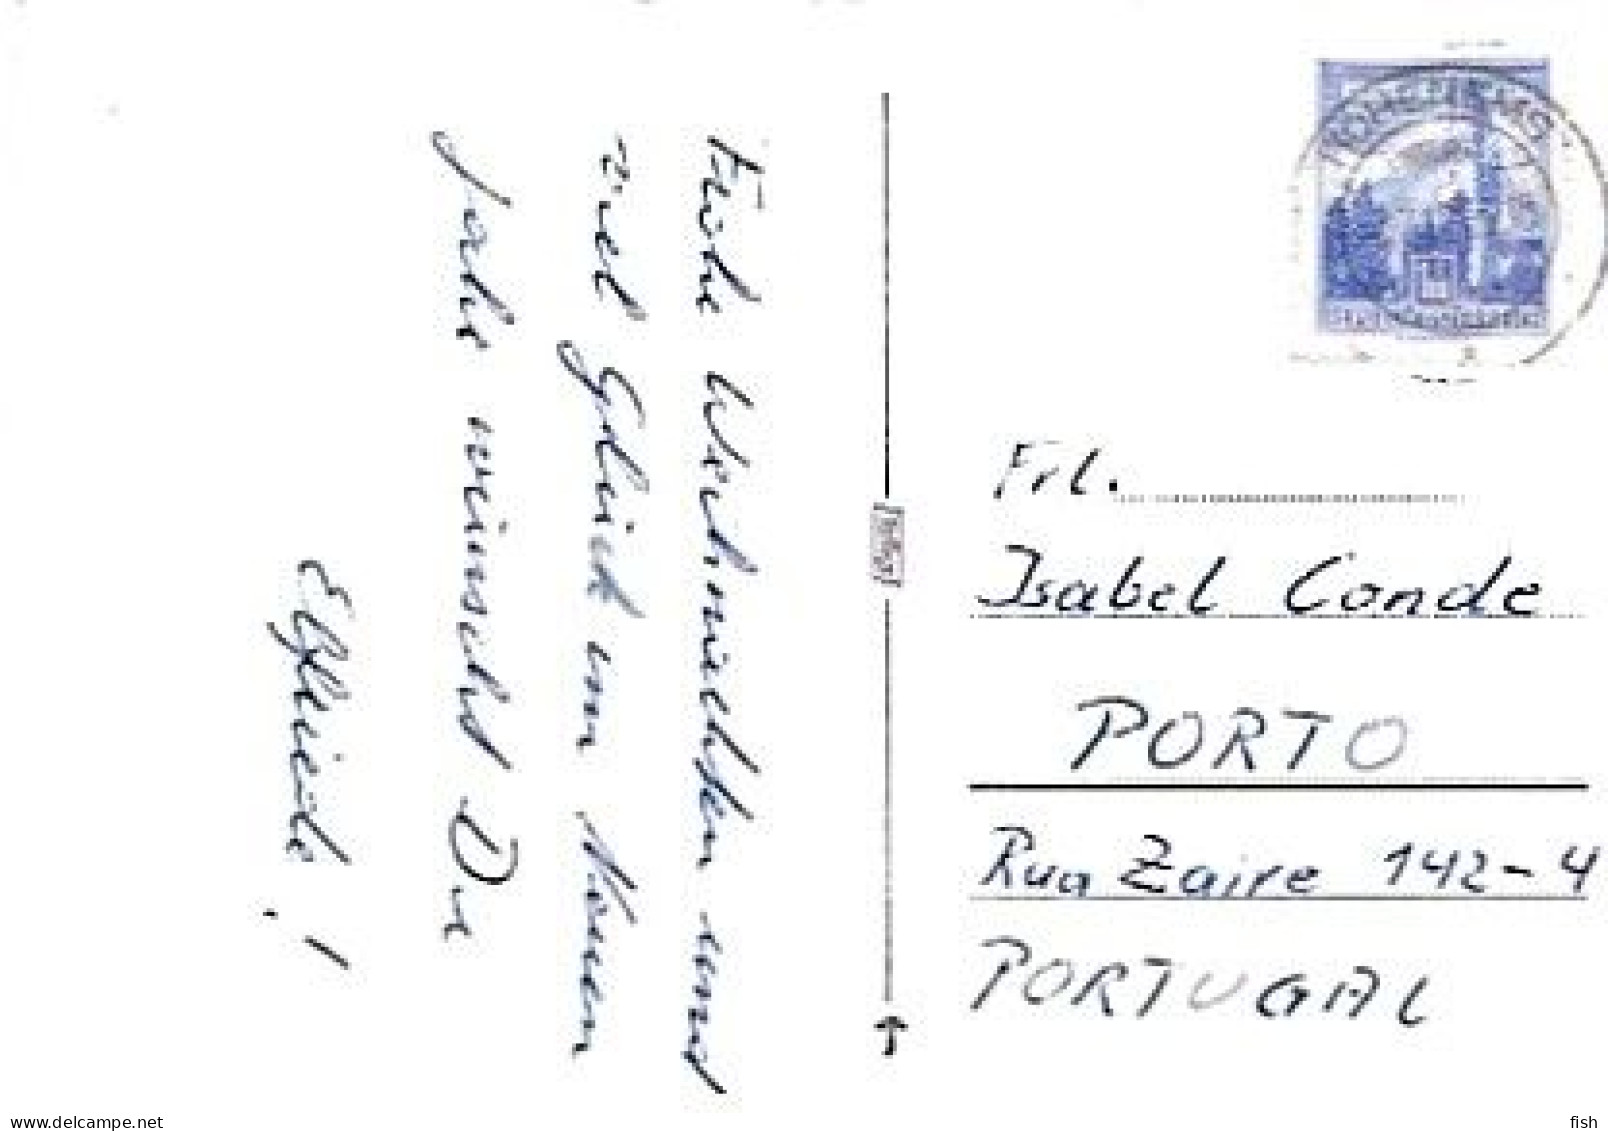 Frohe Weihnachten und
viel Glück im Neuen
Jahr wünscht Dir
Elfriede!
Frl.
Isabel Conde
PORTO
Rua Zaire 142-4
PORTUGAL
www.delcampe.net
fish